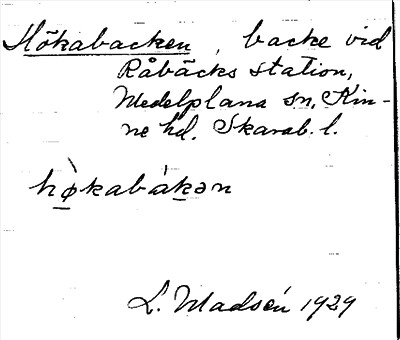 Hökabacken, backe vid
Råbäcks station,
Medelplana sn, Kin-
ne hd. Skarab. l.
hø̀kabàkən
L. Madsén 1929